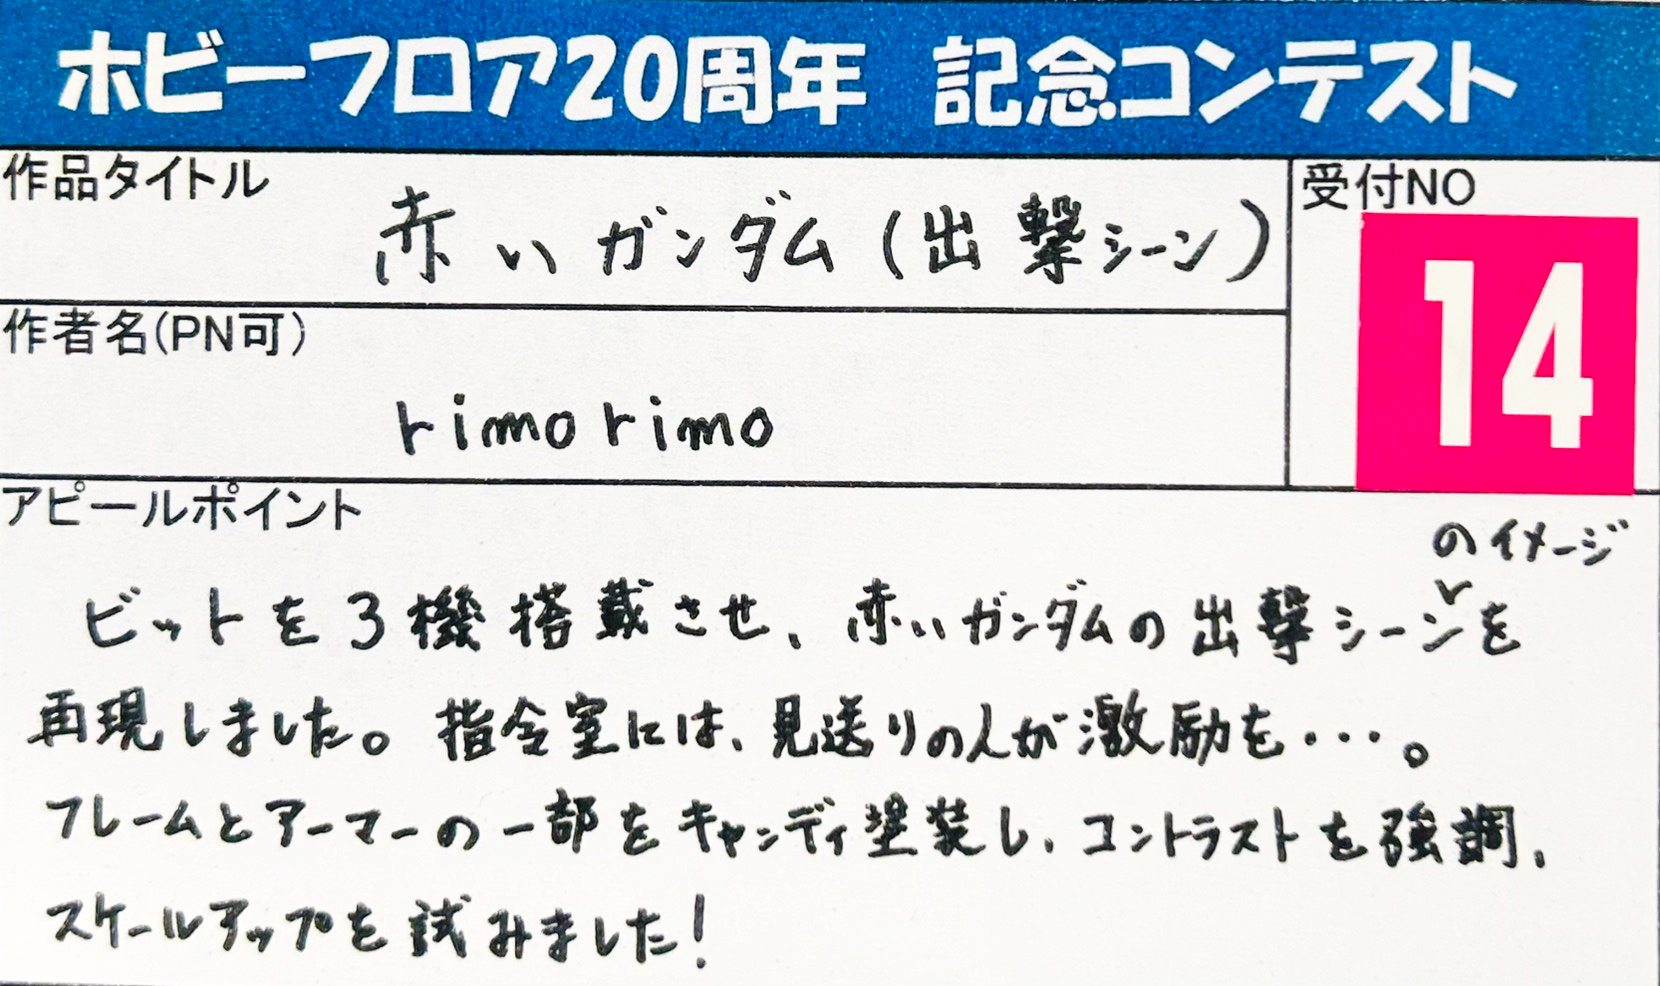 ホビーフロア20周年 記念コンテスト
作品タイトル
赤いガンダム(出撃シーン)
受付NO
14
作者名(PN可)
rimorimo
アピールポイント
のイメージ
ビットを3機搭載させ、赤いガンダムの出撃シーンを
再現しました。指令室には、見送りの人が激励を・・・。
フレームとアーマーの一部をキャンディ塗装し、コントラストを強調、
スケールアップを試みました!